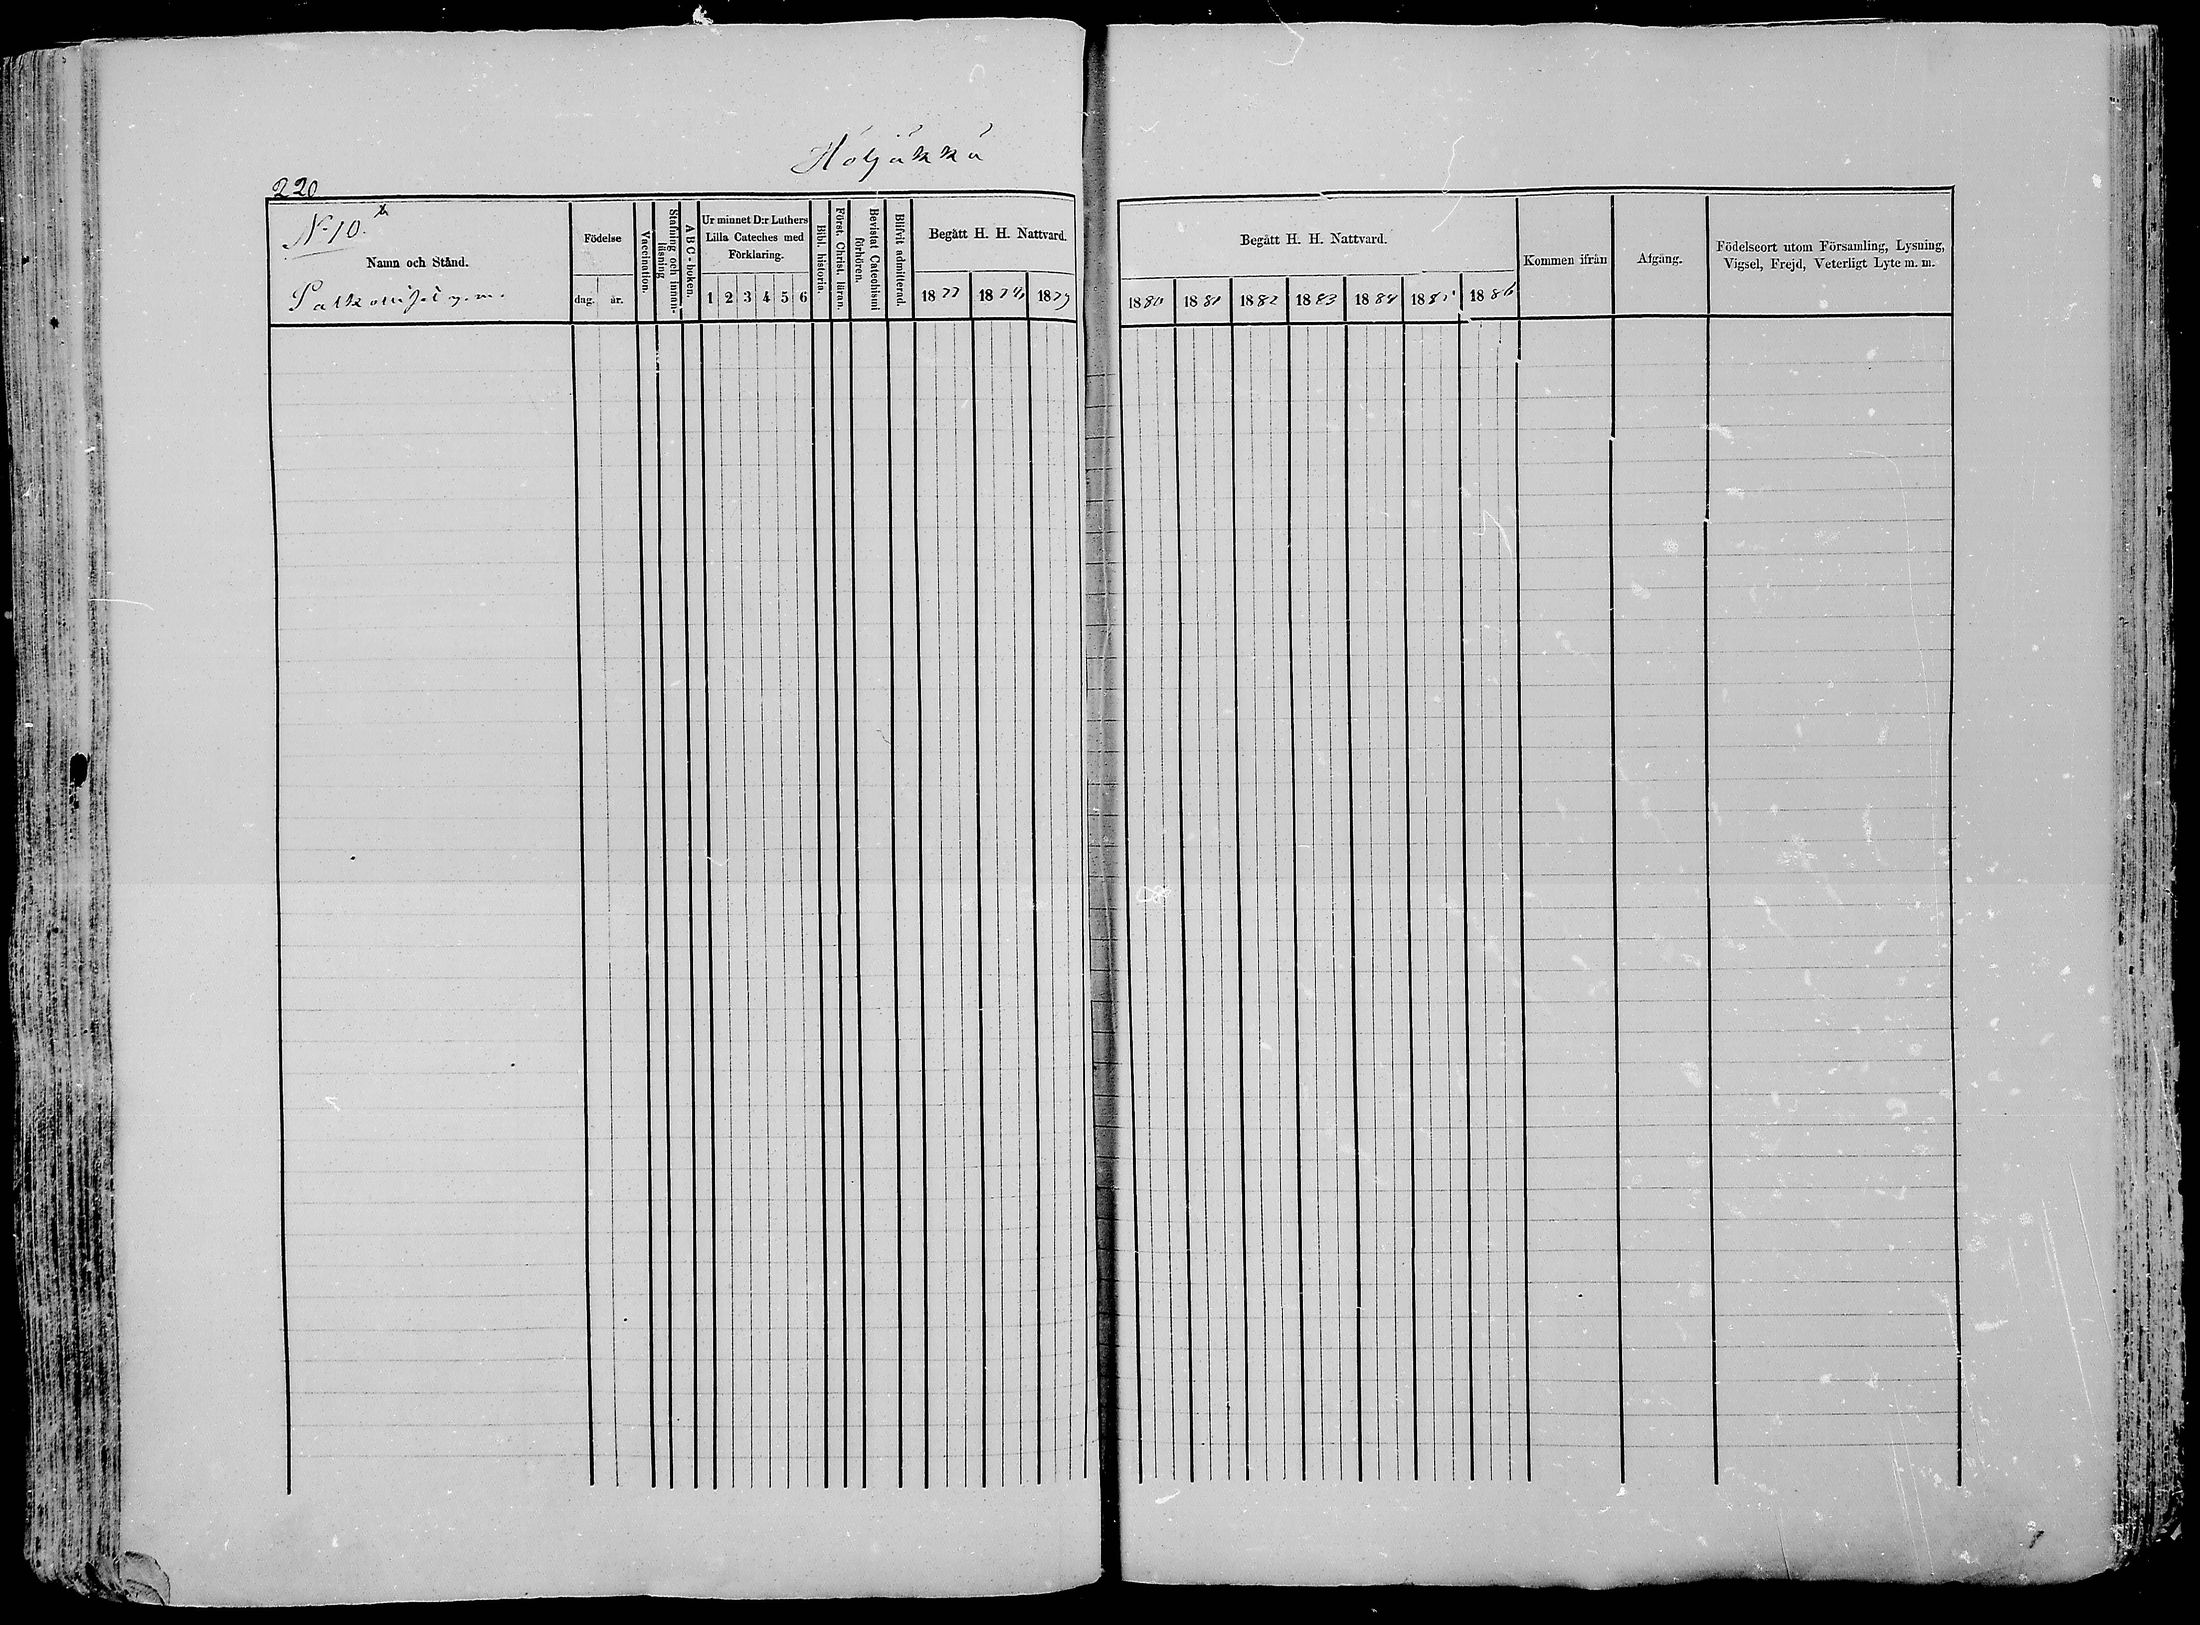 Höljäkkä
220
N:10.
Namn och Stånd.
Födelse
dag. år.
Vaccination.
Stafning och innan-
läsning
A B C - boken.
Ur minnet D:r Luthers
Lilla Cateches med
Förklaring.
1 2 3 4 5 6
Bibl. historia.
Först. Christ. läran.
Bevistat Catechismi
förhören.
Blifvit admitterad.
Begått H. H. Nattvard.
1877 1878 1879
Begått H. H. Nattvard.
1880 1881 1882 1883 1884 1885 1886
Kommen ifrån
Afgång.
Födelseort utom Församling, Lysning,
Vigsel, Frejd, Veterligt Lyte m. m.